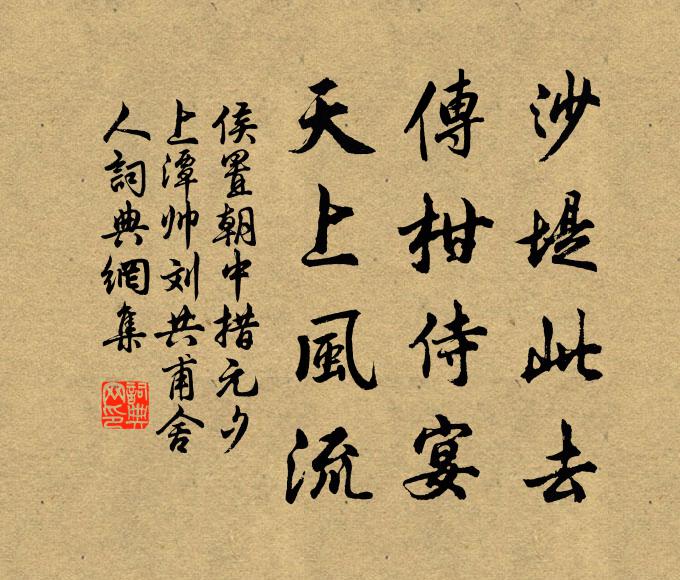 沙堤此去
傳柑侍宴
天上風流
侯置朝中措元夕
上潭帅刘共甫舍
人詞典網集
詞典網印